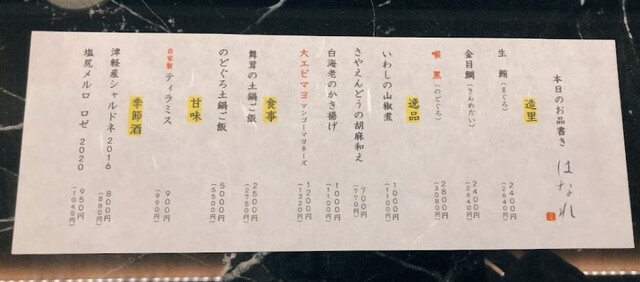 本日のお品書き はなれ
造里
生鮪（まぐろ） 2400円（2640円）
金目鯛（きんめだい） 2400円（2640円）
喉黒（のどぐろ） 2800円（3080円）
逸品
いわしの山椒煮 1000円（1100円）
さやえんどうの胡麻和え 700円（770円）
白海老のかき揚げ 1000円（1100円）
大エビマヨ マンゴーマヨネーズ 1200円（1320円）
食事
舞茸の土鍋ご飯 2500円（2750円）
のどぐろ土鍋ご飯 5000円（5500円）
甘味
自家製 ティラミス 900円（990円）
季節酒
津軽産シャルドネ 2016 800円（880円）
塩尻メルロ ロゼ 2020 950円（1045円）